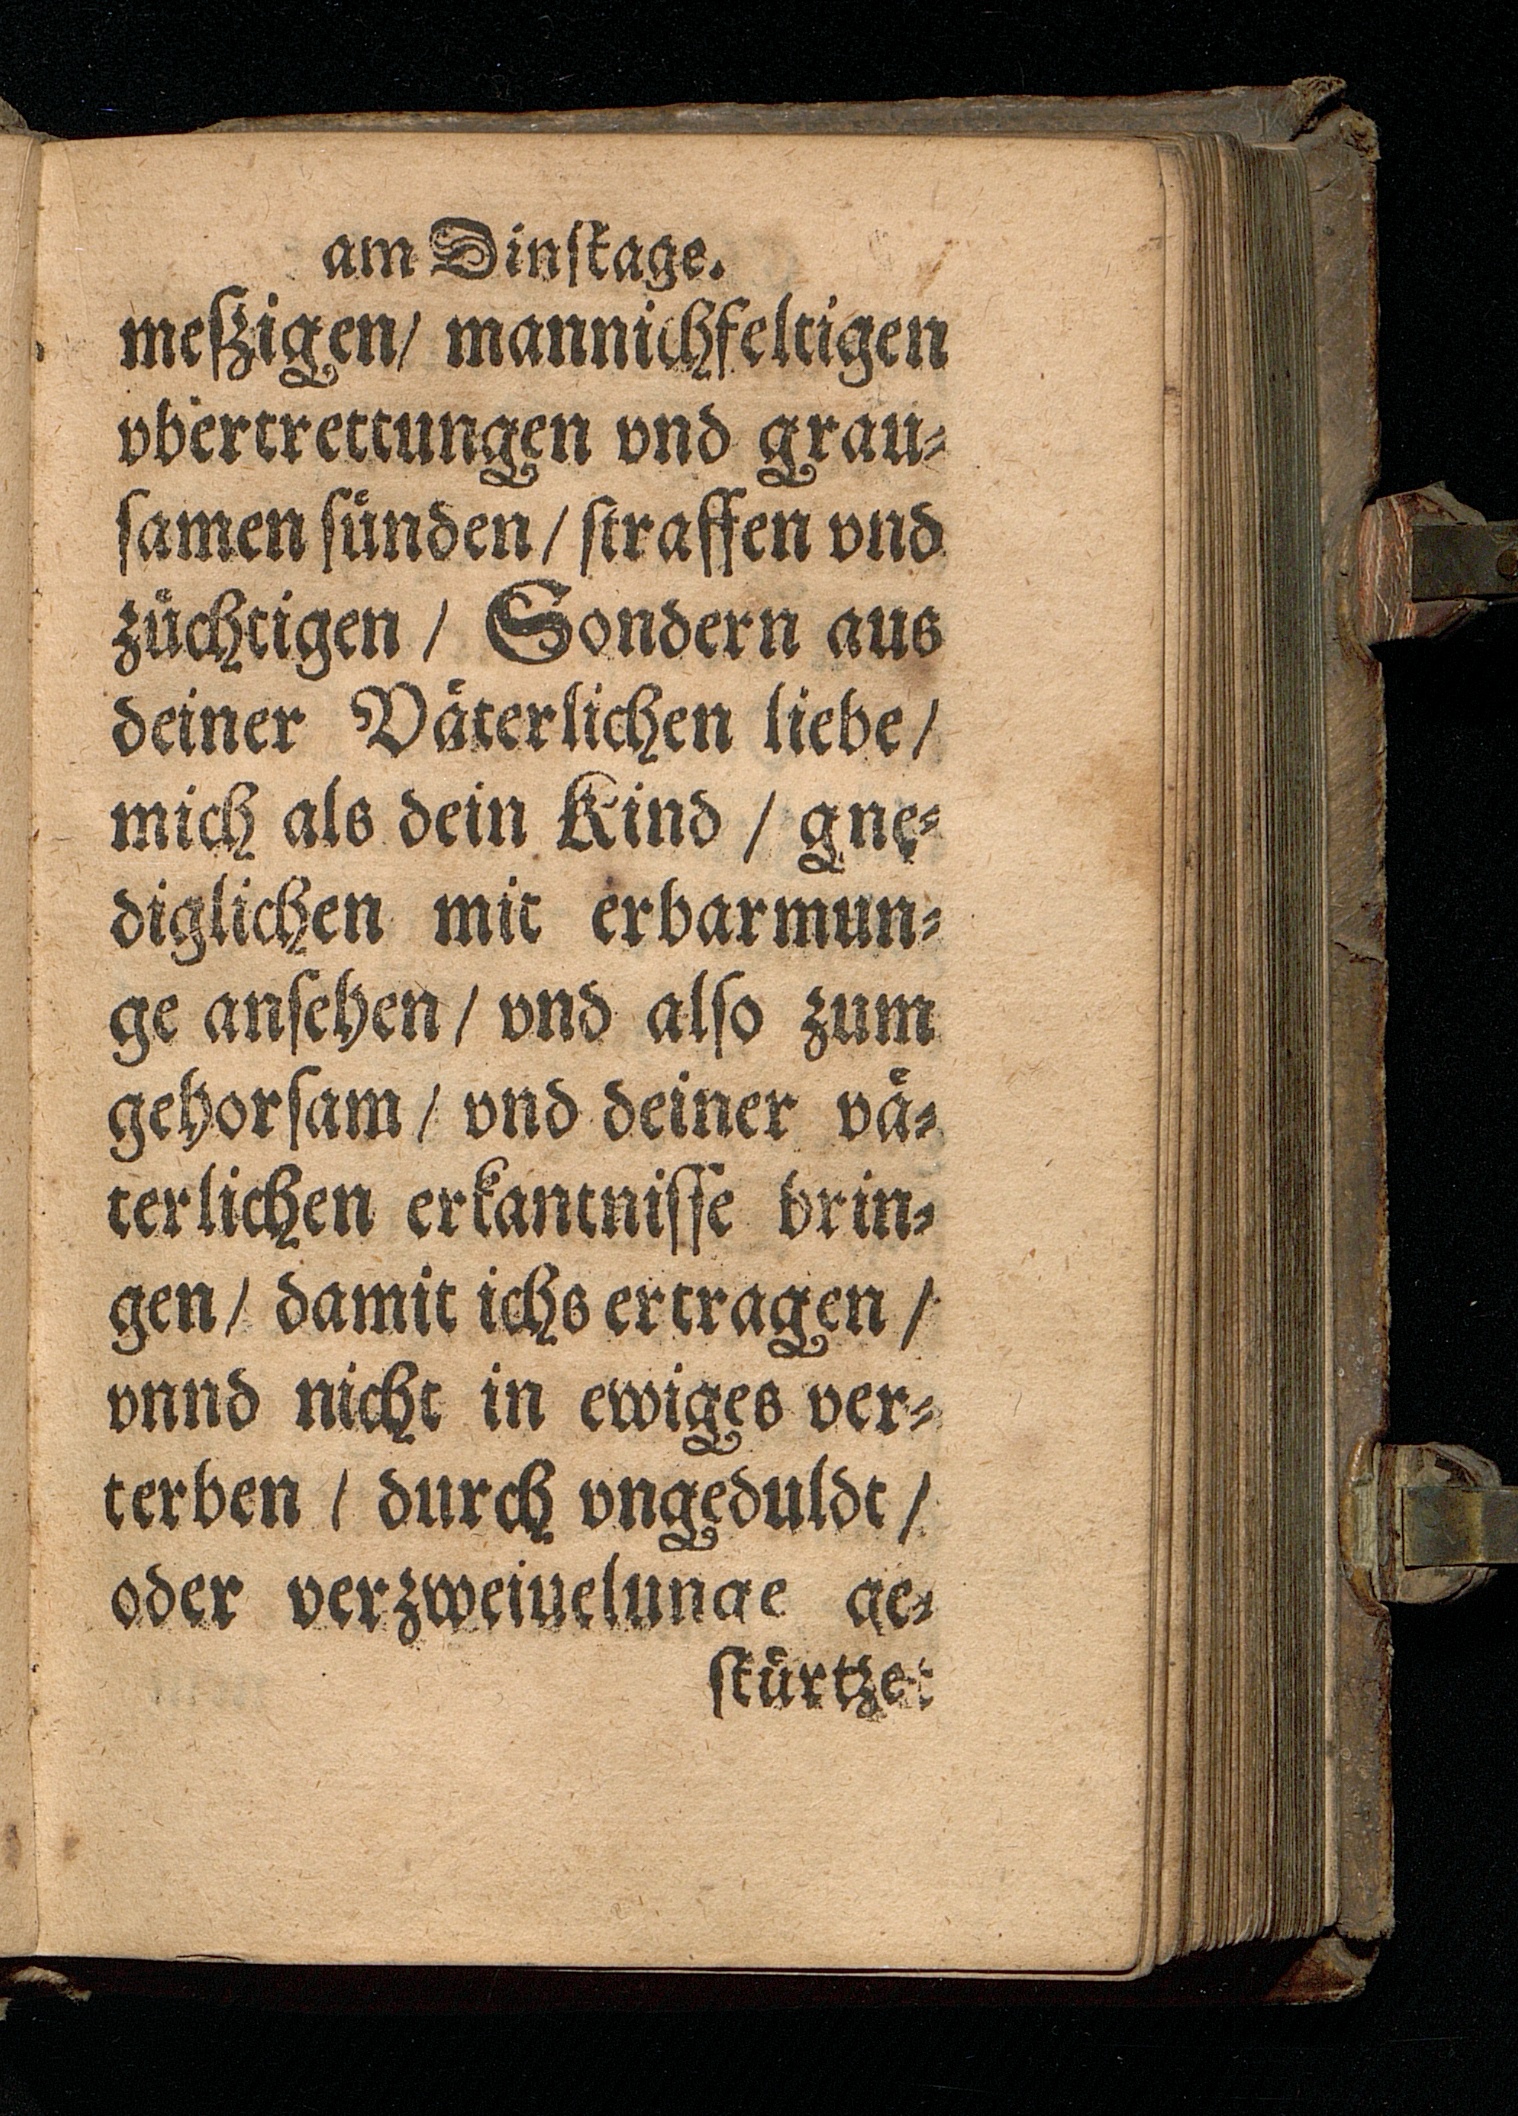 am Dinſtage.
meſzigen/ mannichfeltigen
vbertrettungen vnd grau⸗
ſamen ſuͤnden/ ſtraffen vnd
zuͤchtigen/ Sondern aus
deiner Vaͤterlichen liebe/
mich als dein Kind/ gne⸗
diglichen mit erbarmun⸗
ge anſehen/ vnd alſo zum
gehorſam/ vnd deiner vaͤ⸗
terlichen erkantniſſe brin⸗
gen/ damit ichs ertragen/
vnnd nicht in ewiges ver⸗
terben/ durch vngeduldt/
oder verzweiuelunge ge⸗
ſtuͤrtzet